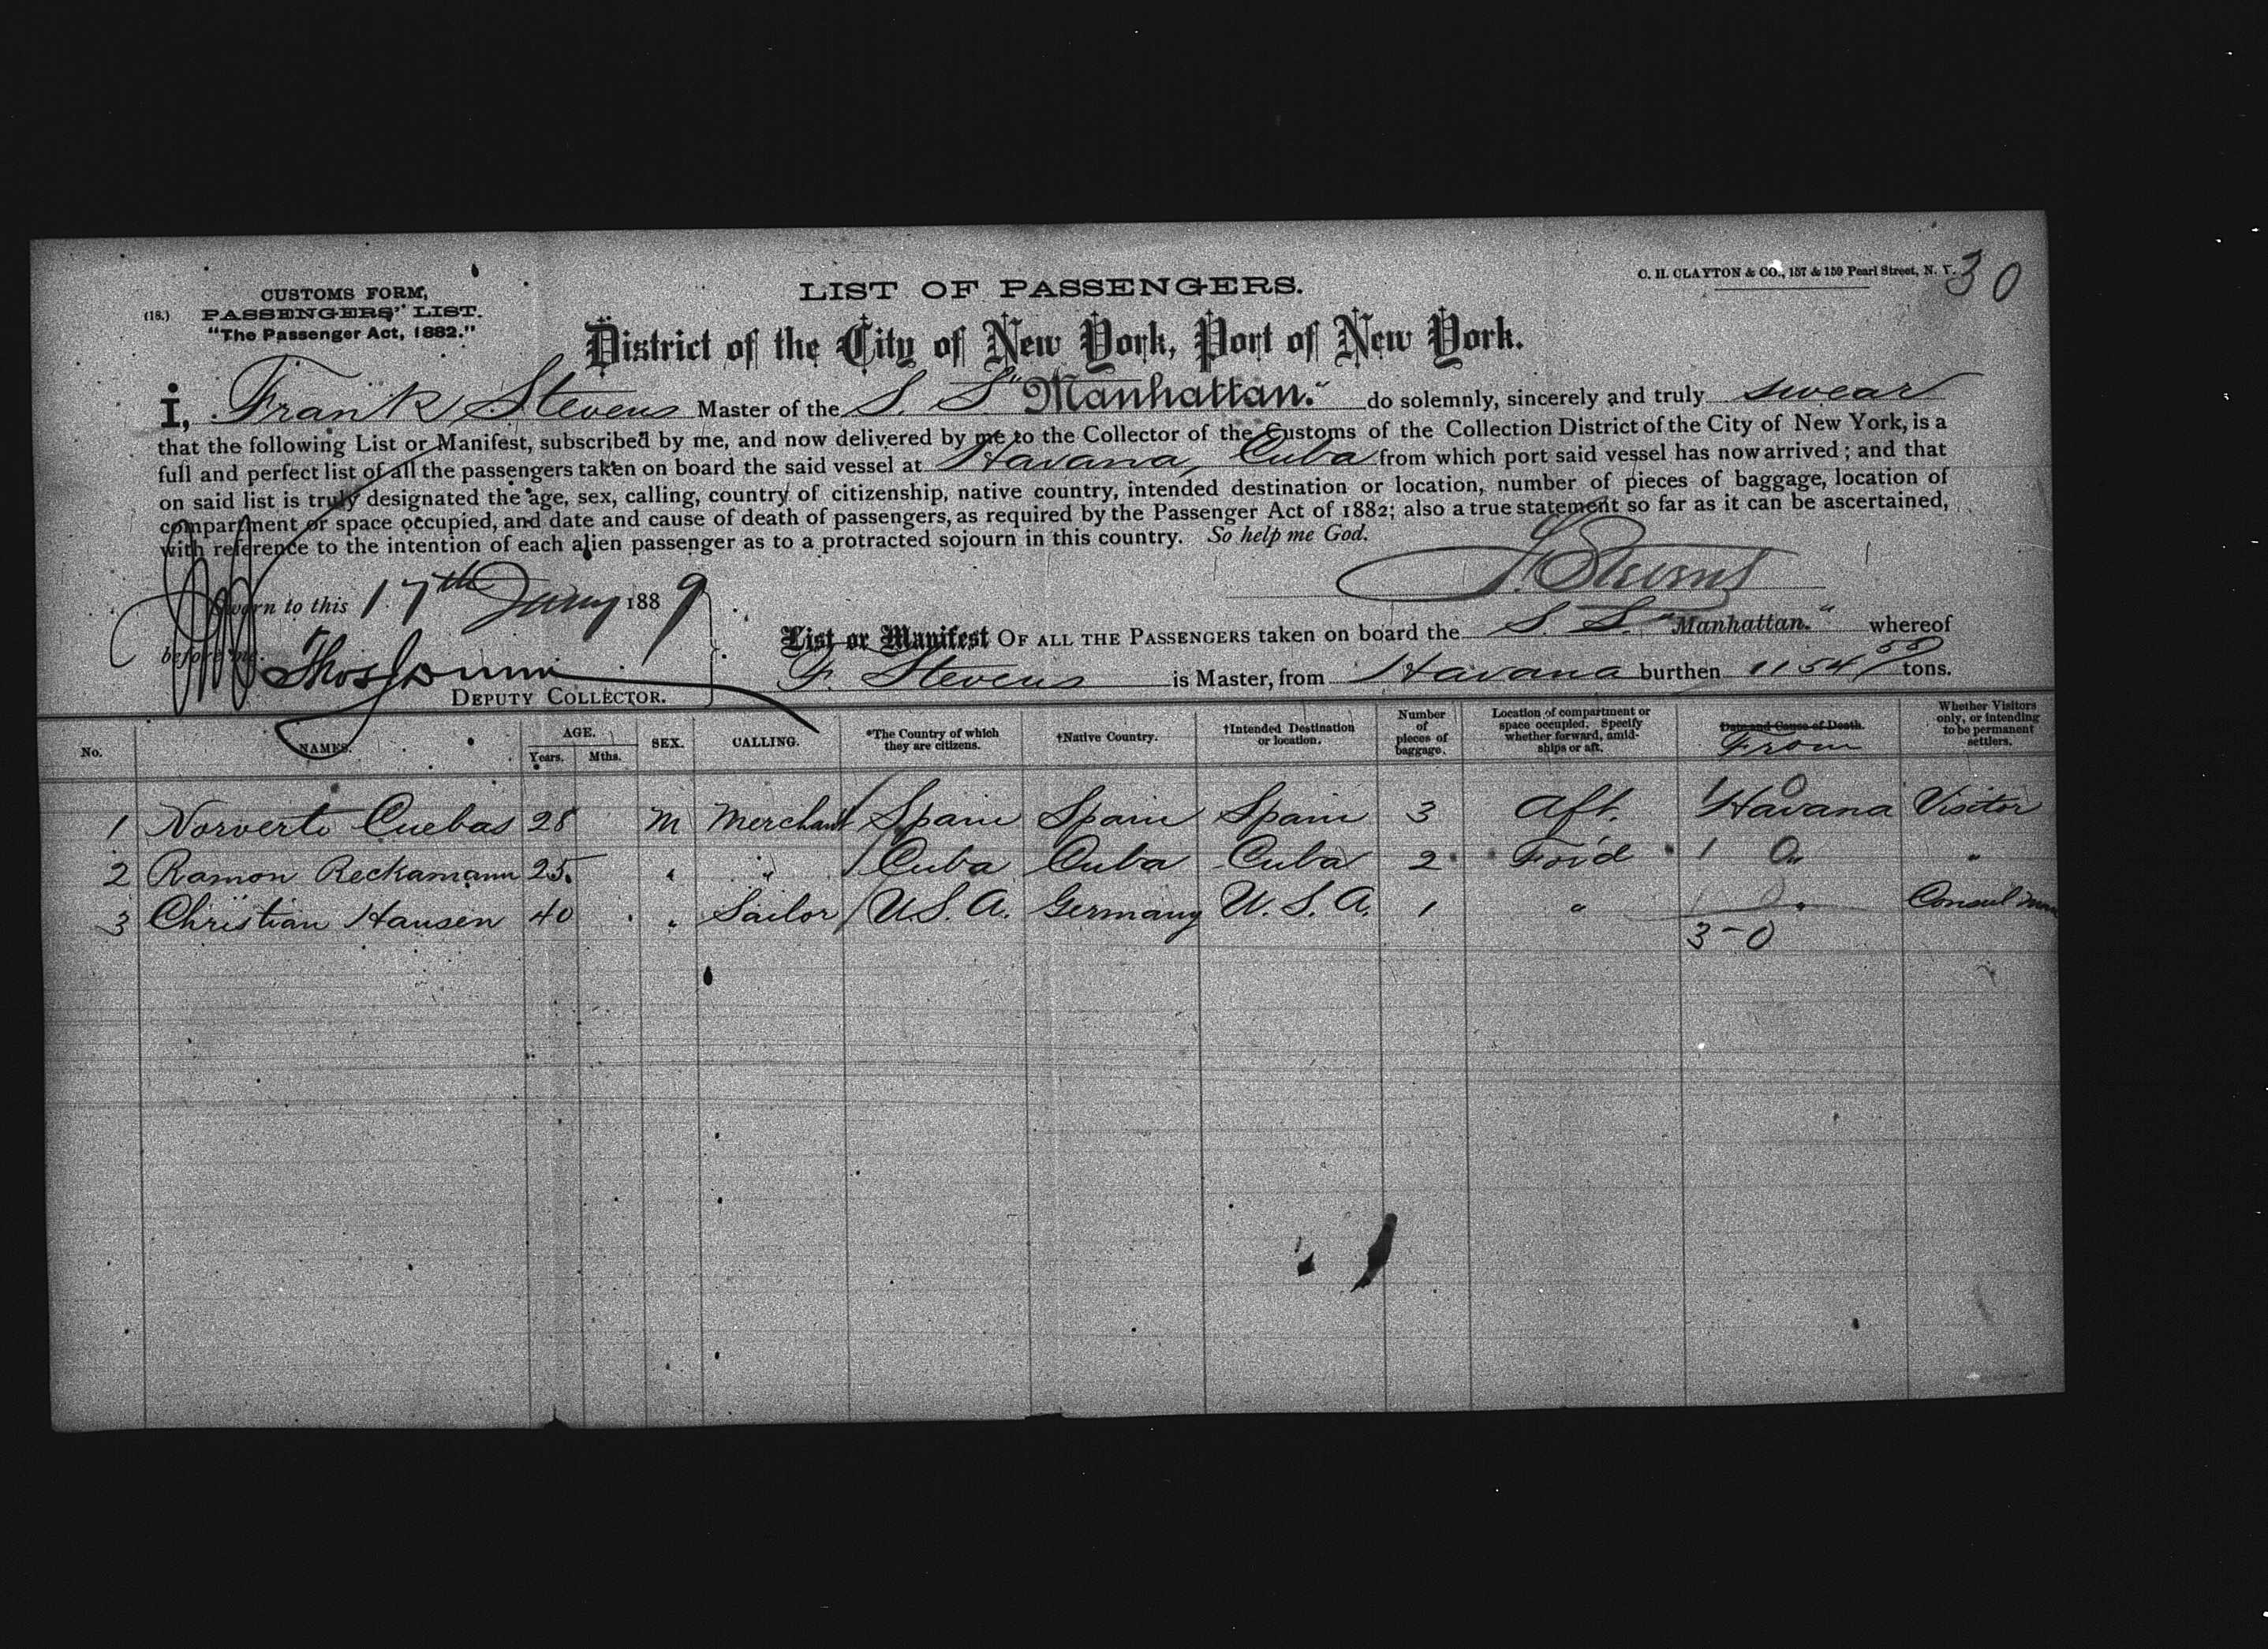 C. H. CLAYTON & CO., 157 & 159 Pearl Street, N. Y.
30
(18.)
CUSTOMS FORM,
PASSENGERS' LIST.
"The Passenger Act, 1882."
LIST OF PASSENGERS.
District of the City of New York, Port of New York.
I, Frank Stevens Master of the S. S. "Manhattan." do solemnly, sincerely and truly swear
that the following List or Manifest, subscribed by me, and now delivered by me to the Collector of the Customs of the Collection District of the City of New York, is a
full and perfect list of all the passengers taken on board the said vessel at Havana, Cuba from which port said vessel has now arrived; and that
on said list is truly designated the age, sex, calling, country of citizenship, native country, intended destination or location, number of pieces of baggage, location of
compartment or space occupied, and date and cause of death of passengers, as required by the Passenger Act of 1882; also a true statement so far as it can be ascertained,
with reference to the intention of each alien passenger as to a protracted sojourn in this country. So help me God.
F. Stevens
Sworn to this 17th Jany 1889
before me.
DEPUTY COLLECTOR.
List or Manifest OF ALL THE PASSENGERS taken on board the S. S. "Manhattan." whereof
F. Stevens is Master, from Havana burthen 1154 tons.
No. NAMES. AGE. Years. Mths. SEX. CALLING. *The Country of which they are citizens. †Native Country. †Intended Destination or location. Number of pieces of baggage. Location of compartment or space occupied. Specify whether forward, amidships or aft. Date and Cause of Death. From Whether Visitors only, or intending to be permanent settlers.
1 Norverto Cuebas 28 M Merchant Spain Spain Spain 3 Aft. 1 0 Havana Visitor
2 Ramon Reckamann 25 " " Cuba Cuba Cuba 2 For'd 1 0 " "
3 Christian Hansen 40 " Sailor U.S.A. Germany U.S.A. 1 " 1 0 " Consul man
3 - 0